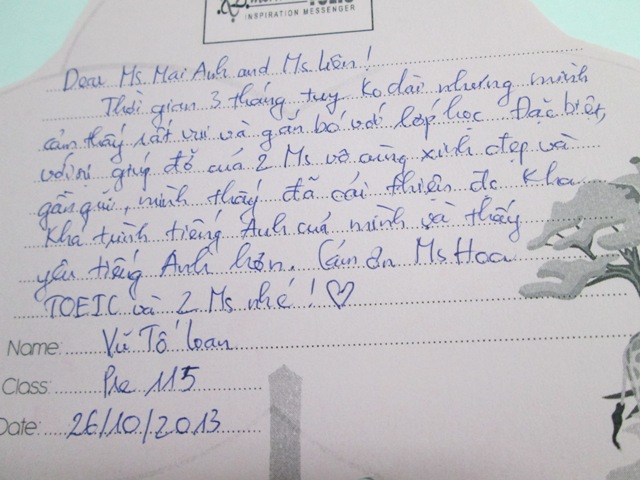 INSPIRATION MESSENGER
Dear Ms Mai Anh and Ms Liên!
Thời gian 3 tháng tuy ko dài nhưng mình
cảm thấy rất vui và gắn bó với lớp học. Đặc biệt,
với sự giúp đỡ của 2 Ms vô cùng xinh đẹp và
gần gũi, mình thấy đã cải thiện đc kha
khá trình tiếng Anh của mình và thấy
yêu tiếng Anh hơn. Cám ơn Ms Hoa
TOEIC và 2 Ms nhé! ♡
Name: Vũ Tố Loan
Class: Pre 115
Date: 26/10/2013